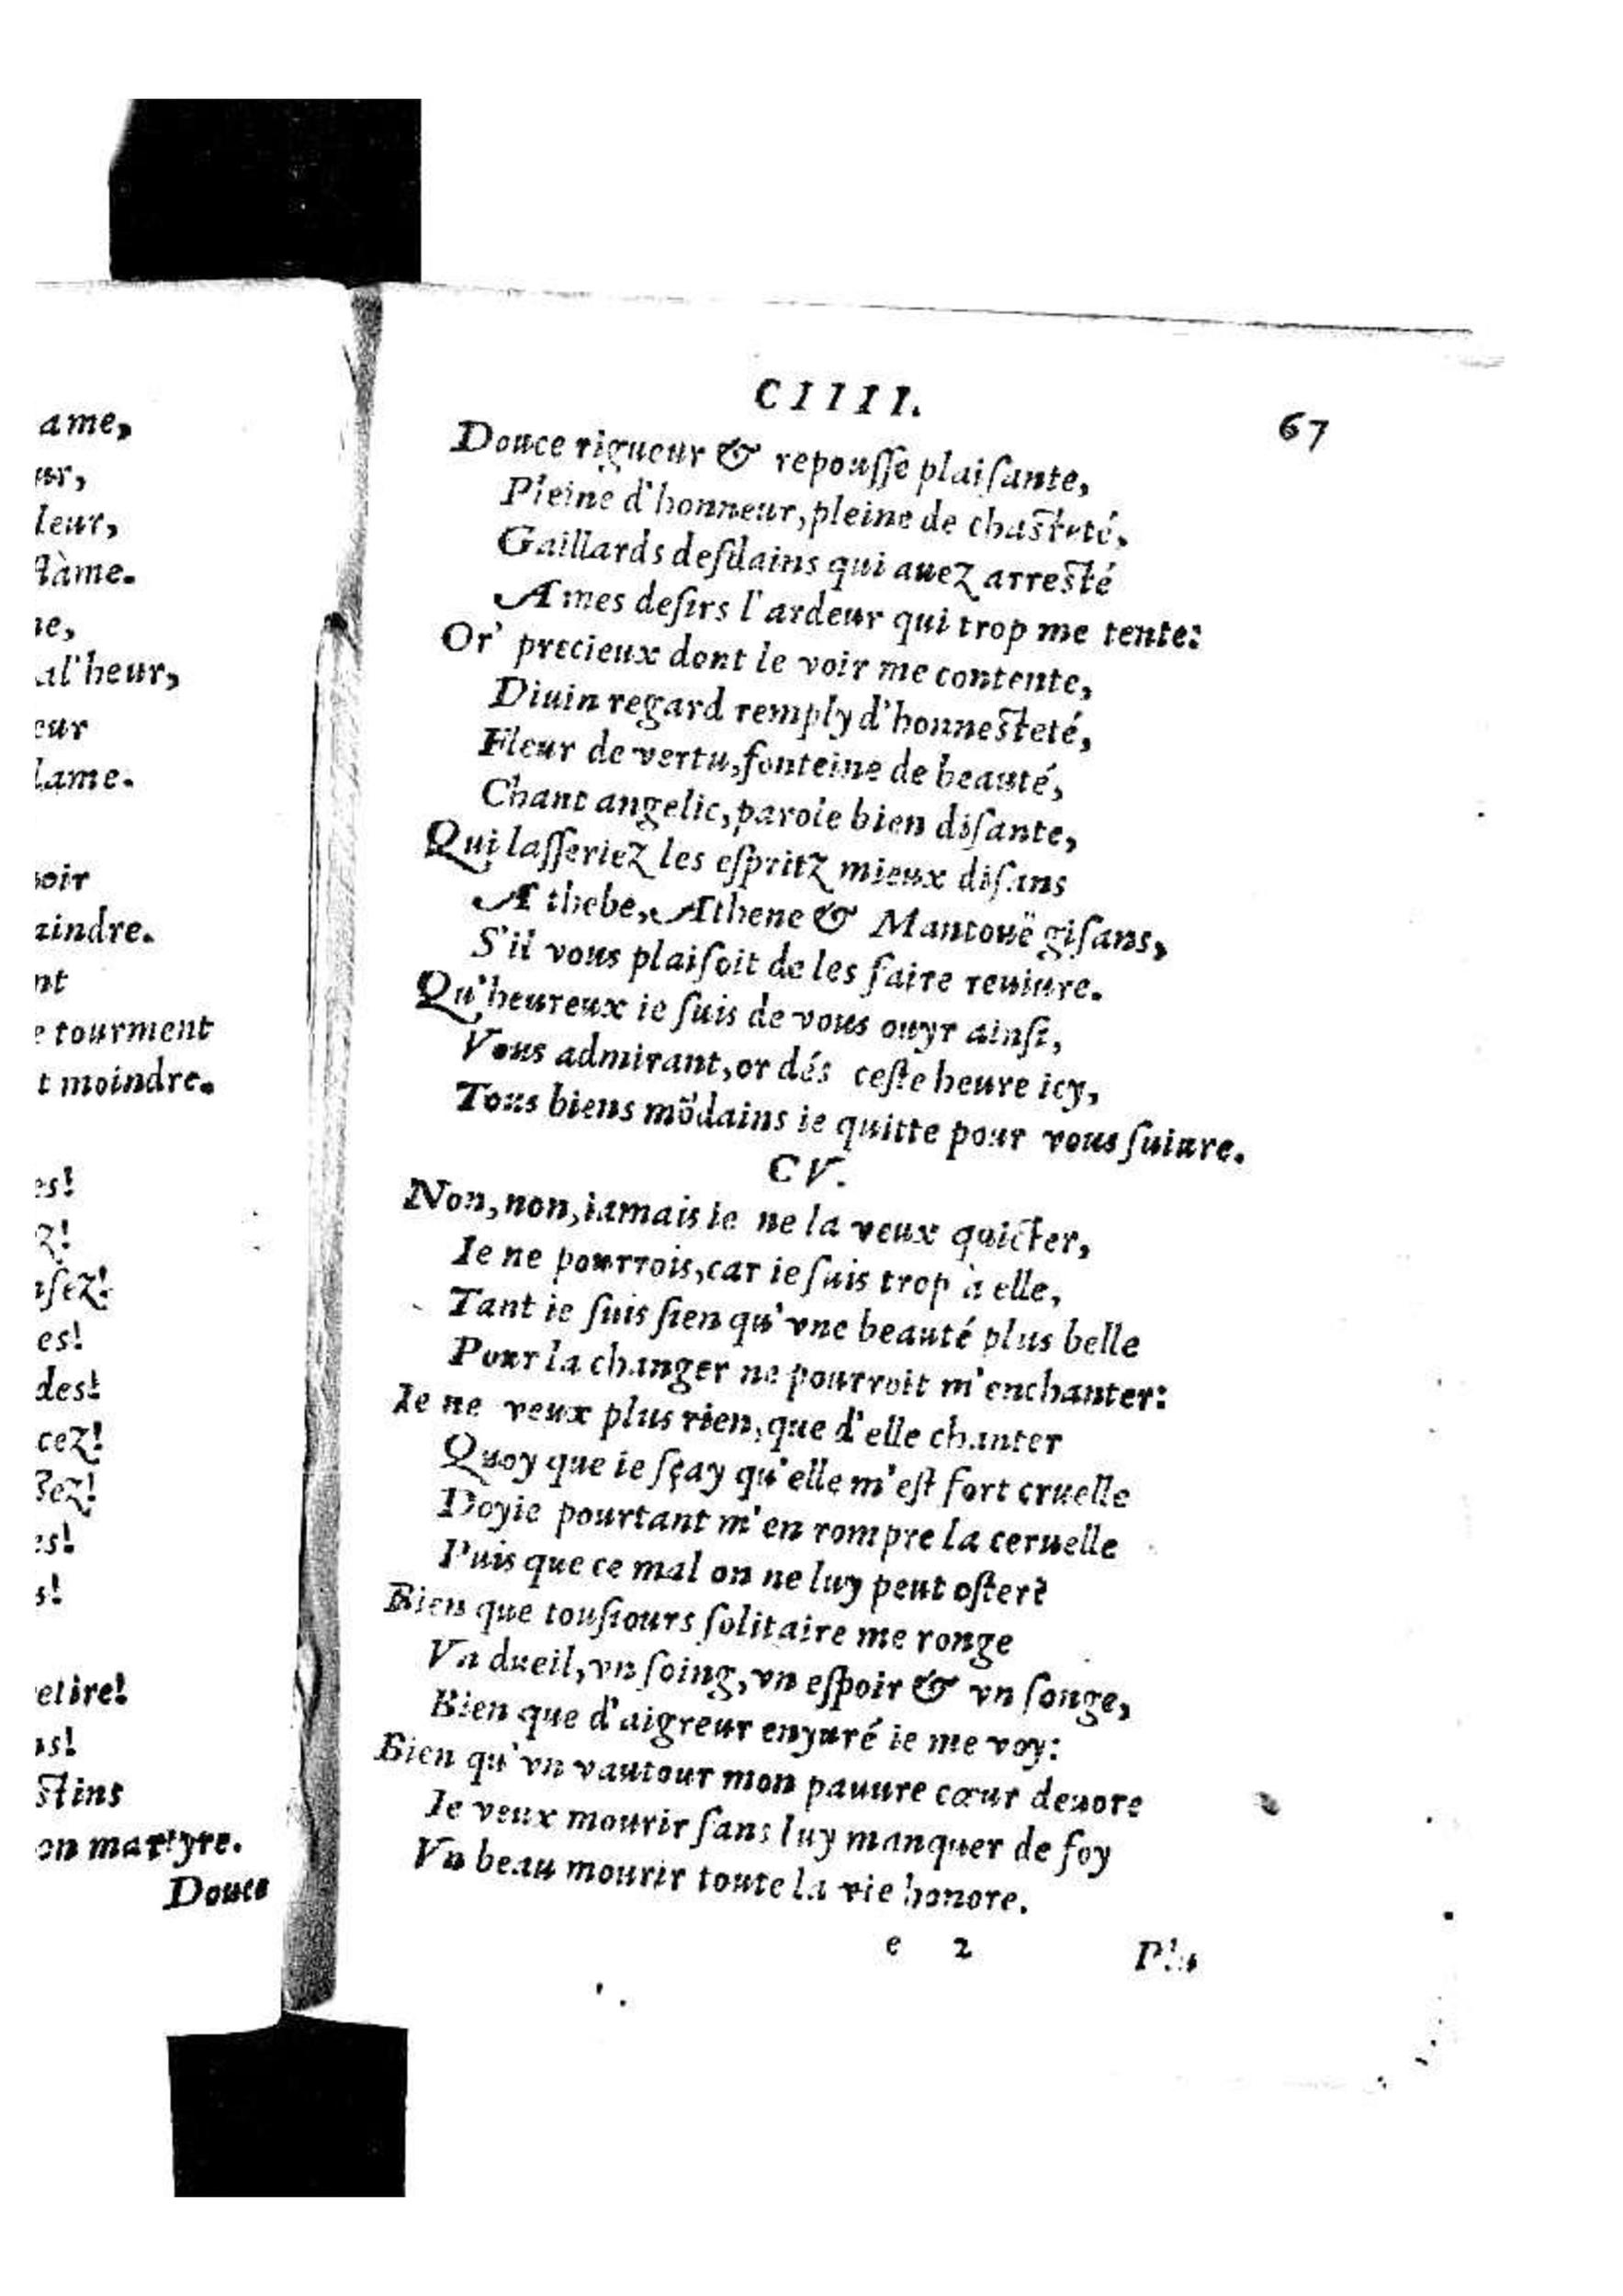 ame,
ur,
leur,
flàme.
ne,
al'heur,
eur
lame.
oir
aindre.
nt
e tourment
t moindre.
es!
z!
sez!
es!
des!
cez!
sez!
es!
s!
etire!
us!
stins
on martyre.
Douce
CIIII.
67
Douce rigueur & repouſſe plaiſante,
Pleine d'honneur, pleine de chaſteté,
Gaillards deſdains qui auez arreſté
A mes deſirs l'ardeur qui trop me tente:
Or' precieux dont le voir me contente,
Diuin regard remply d'honneſteté,
Fleur de vertu, fonteine de beauté,
Chant angelic, parole bien diſante,
Qui laſſeriez les eſpritz mieux diſans
A thebe, Athene & Mantouë giſans,
S'il vous plaiſoit de les faire reuiure.
Qu'heureux ie ſuis de vous ouyr ainſi,
Vous admirant, or dés ceſte heure icy,
Tous biens mõdains ie quitte pour vous ſuiure.
CV.
Non, non, iamais ie ne la veux quicter,
Ie ne pourrois, car ie ſuis trop à elle,
Tant ie ſuis ſien qu'vne beauté plus belle
Pour la changer ne pourroit m'enchanter:
Ie ne veux plus rien, que d'elle chanter
Quoy que ie ſçay qu'elle m'eſt fort cruelle
Doyie pourtant m'en rompre la ceruelle
Puis que ce mal on ne luy peut oſter?
Bien que touſiours ſolitaire me ronge
Vn dueil, vn ſoing, vn eſpoir & vn ſonge,
Bien que d'aigreur enyuré ie me voy:
Bien qu'vn vautour mon pauure cœur deuore
Ie veux mourir ſans luy manquer de foy
Vn beau mourir toute la vie honore.
e 2
Plu